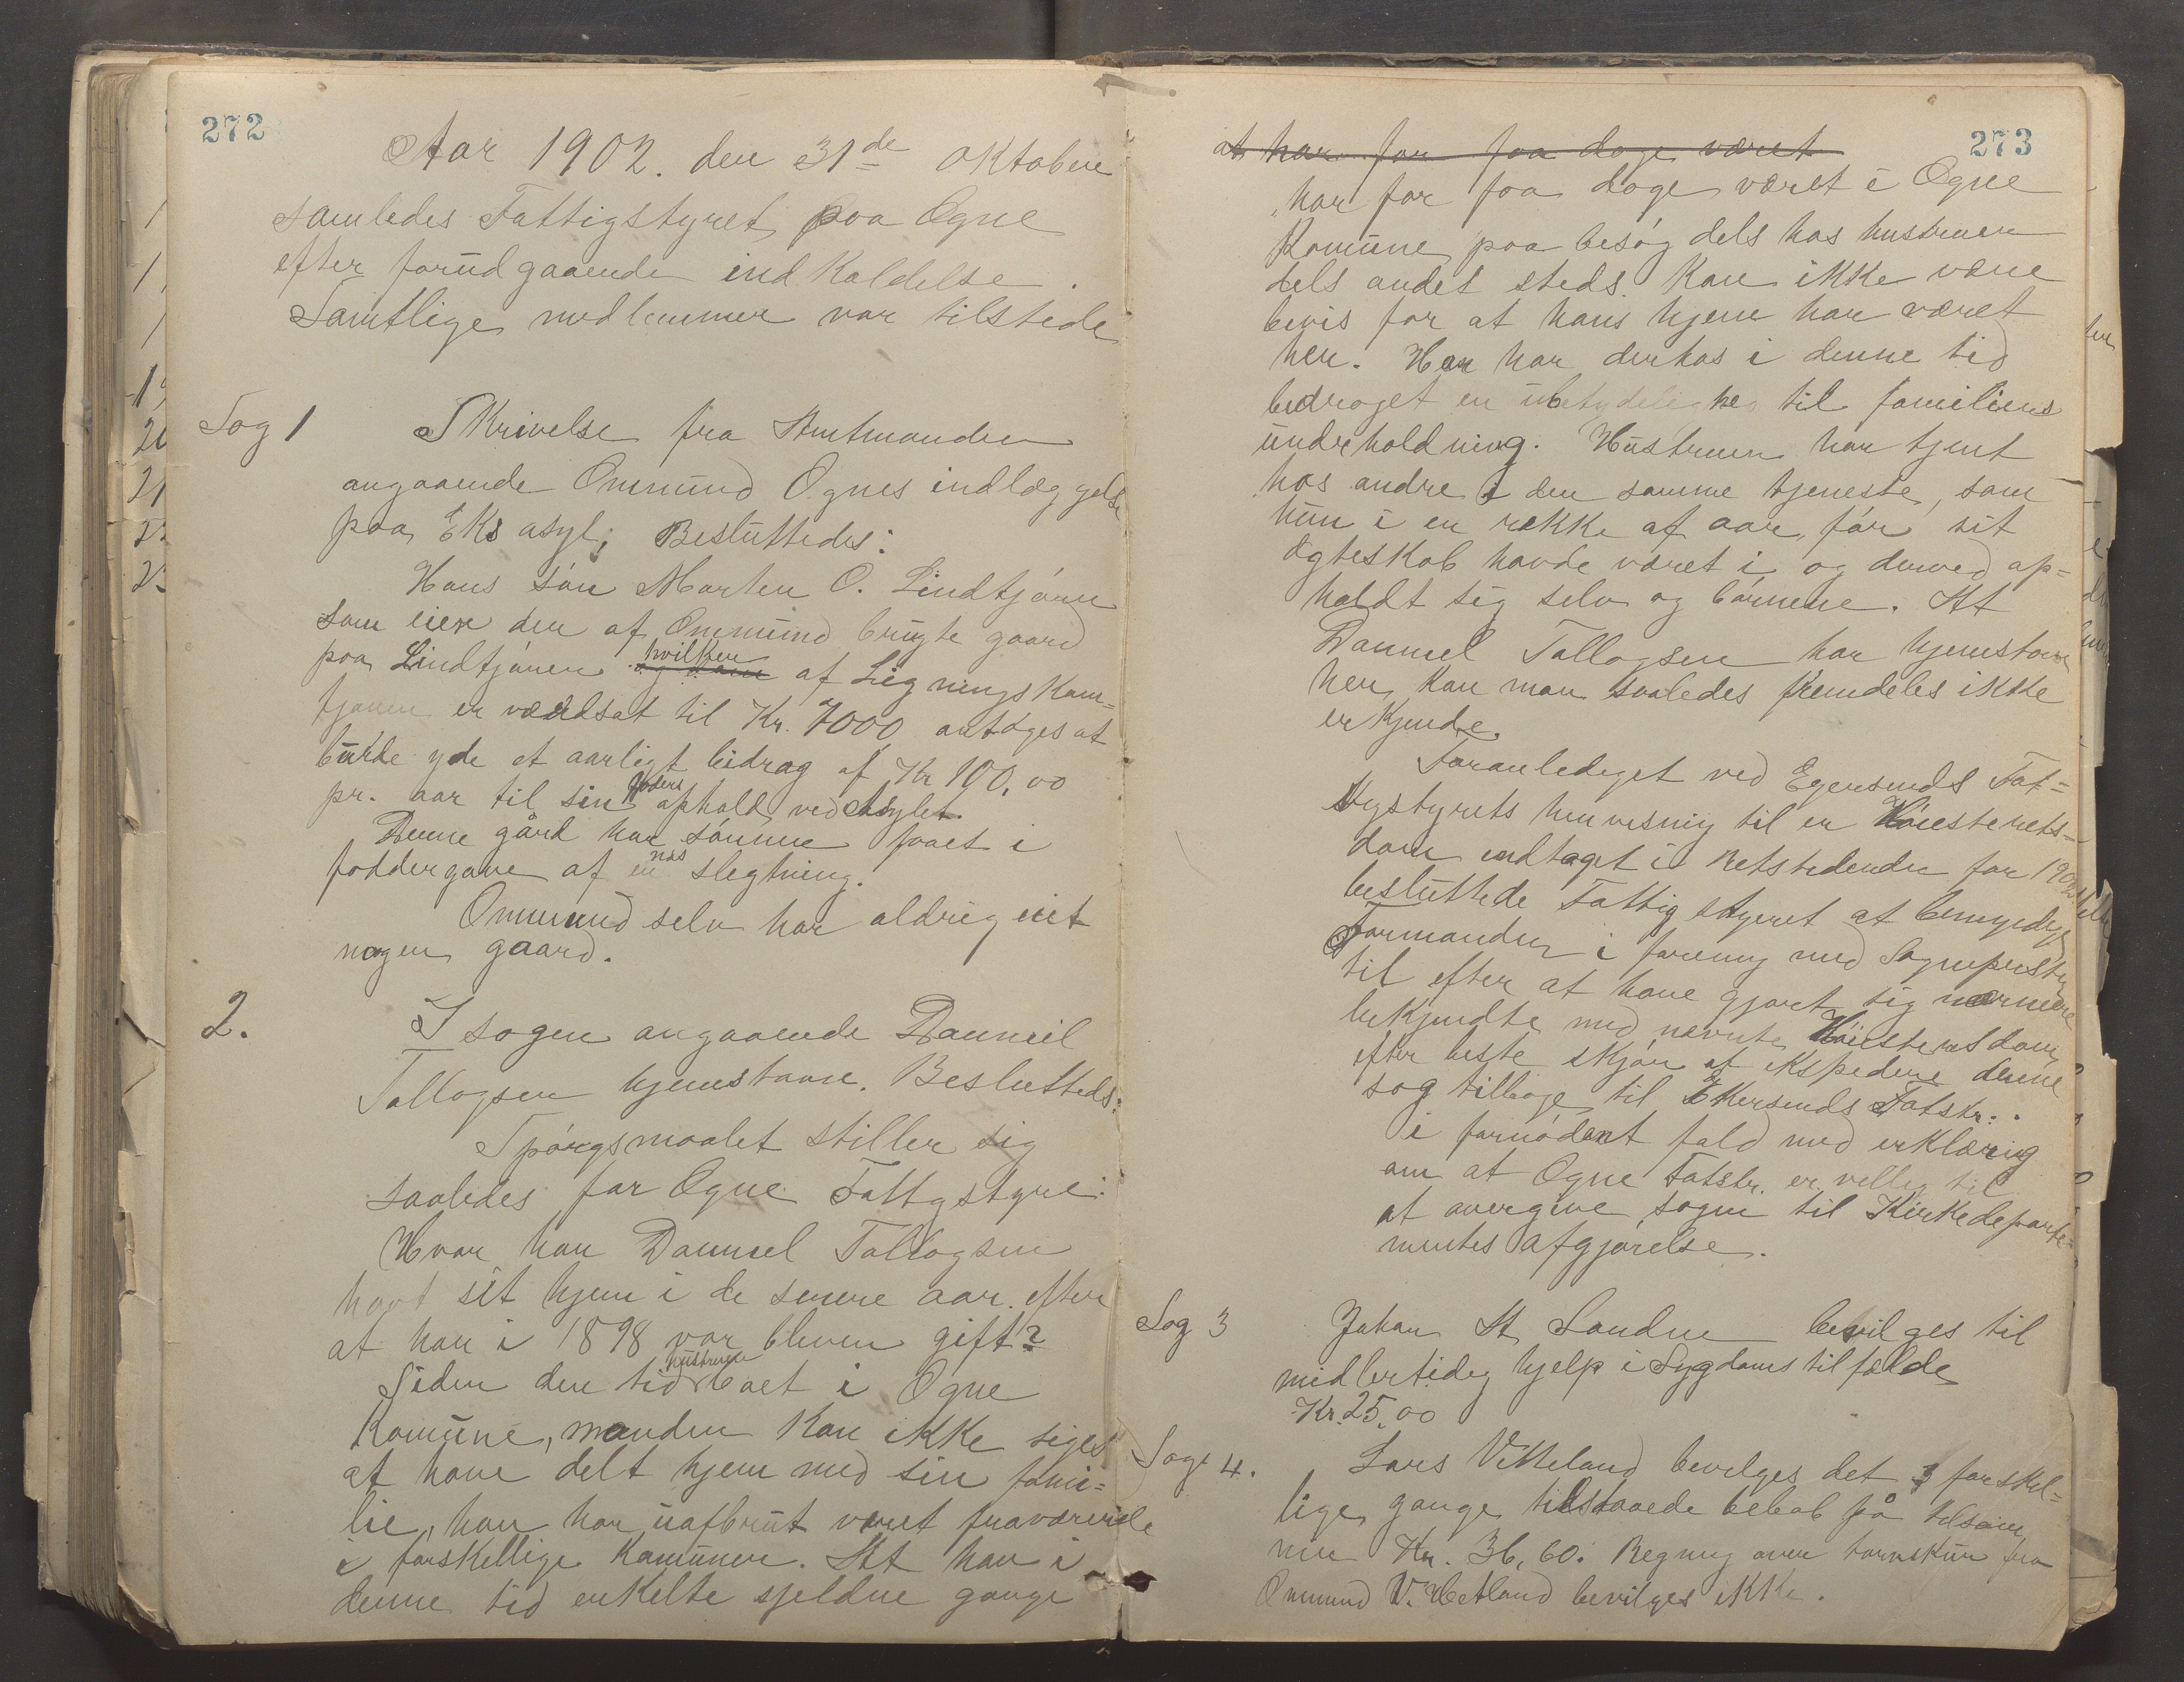 272
Aar 1902. den 31de Oktober
samledes Fattigstyret paa Ogne
efter forudgaaende indkaldelse.
Samtlige medlemmer var tilstede
Sag 1 Skrivelse fra Amtmanden
angaaende Ommund Ognes indlæggelse
paa Eks asyl; Besluttedes:
Hans søn Marten O. Lindtjørn
som eier den af Ommund brugte gaard
paa Lindtjørnen hvilken af Lignings Kom=
tjonen er værdsat til Kr. 7000 antoges at
burde yde et aarligt bidrag af Kr 100,00
pr. aar til sin faders ophold ved Asylet.
Denne gård har sønnen faaet i
foddergave af en nær slegtning.
Ommund selv har aldrig eiet
nogen gaard.
2. I sagen angaaende Danniel
Tallogsen hjemstavn. Besluttedes:
Spørgsmaalet stiller sig
saaledes for Ogne Fattigstyre:
Hvor har Danniel Tallogsen
havt sit hjem i de senere aar efter
at han i 1898 var bleven gift?
Siden den tid hustruen boet i Ogne
Komune, manden kan ikke siges
at have delt hjem med sin fami=
lie, han har uafbrut været fraværende
i forskellige Komuner. At han i
denne tid enkelte sjeldne gange
273
at har for faa dage været
har for faa dage været i Ogne
Komune paa besøg dels hos hustruen
dels andet steds. Kan ikke være
bevis for at hans hjem har været
her. Han har derhos i denne tid
bedraget en ubetydelighe til familiens
underholdning. Hustruen har tjent
hos andre i den samme tjeneste, som
hun i en rekke af aar, før sit
ægteskab havde været i og derved op=
holdt sig selv og børnene. At
Danniel Tallogsen har hjemstavn
her, kan man saaledes fremdeles ikke
erkjende.
Foranlediget ved Egersunds Fat=
tigstyrets henvisning til en Høiesterets=
dom indtaget i Retstidenden for 1902
besluttede Fattigstyret at bemyndige
Formanden i forening med Sognepresten
til efter at have gjort sig nærmere
bekjendte med nævnte Høiesteretsdom
efter beste skjøn at ekspedere denne
sag tilbage til Ekersunds Fatstr:.
i fornødent fald med erklæring
om at Ogne Fatstr. er villig til
at overgive sagen til Kirkedeparte=
mentes afgjørelse.
Sag 3 Johan St Sandne bevilges til
midlertidig hjelp i Sygdoms tilfælde
Kr. 25.00
Sag 4. Lars Vetteland bevilges det 3 forskel=
lige gange tilstaaede beløb på tilsam
men Kr. 36,60. Regning over fra
Ommund V. Hetland bevilges ikke.